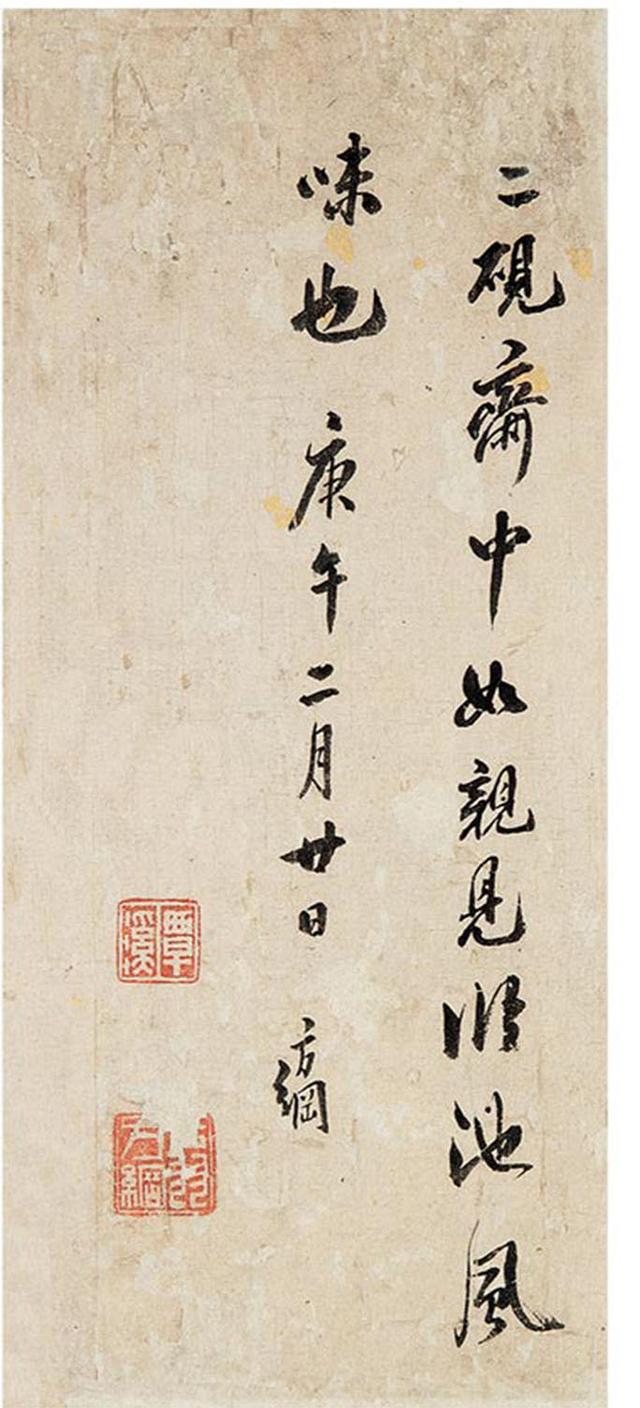 二硯齋中如親見臨池風
味也 庚午二月廿日 方綱
覃溪
翁方綱